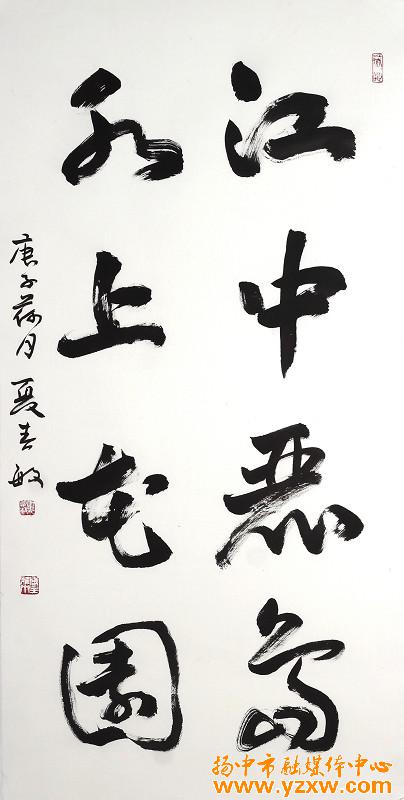 江中麗島
水上花園
庚子荷月 夏 敏
扬中市融媒体中心
www.yzxw.com